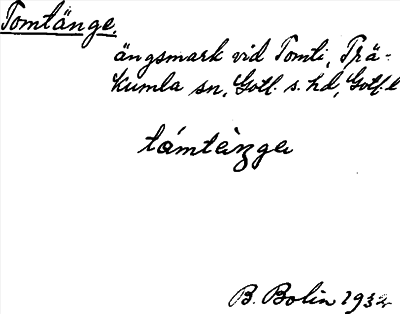 Tomtänge,
ängsmark vid Tomti, Trä-
kumla sn, Gotl. s. hd, Gotl. l
támtèŋge
B. Bolin 1932